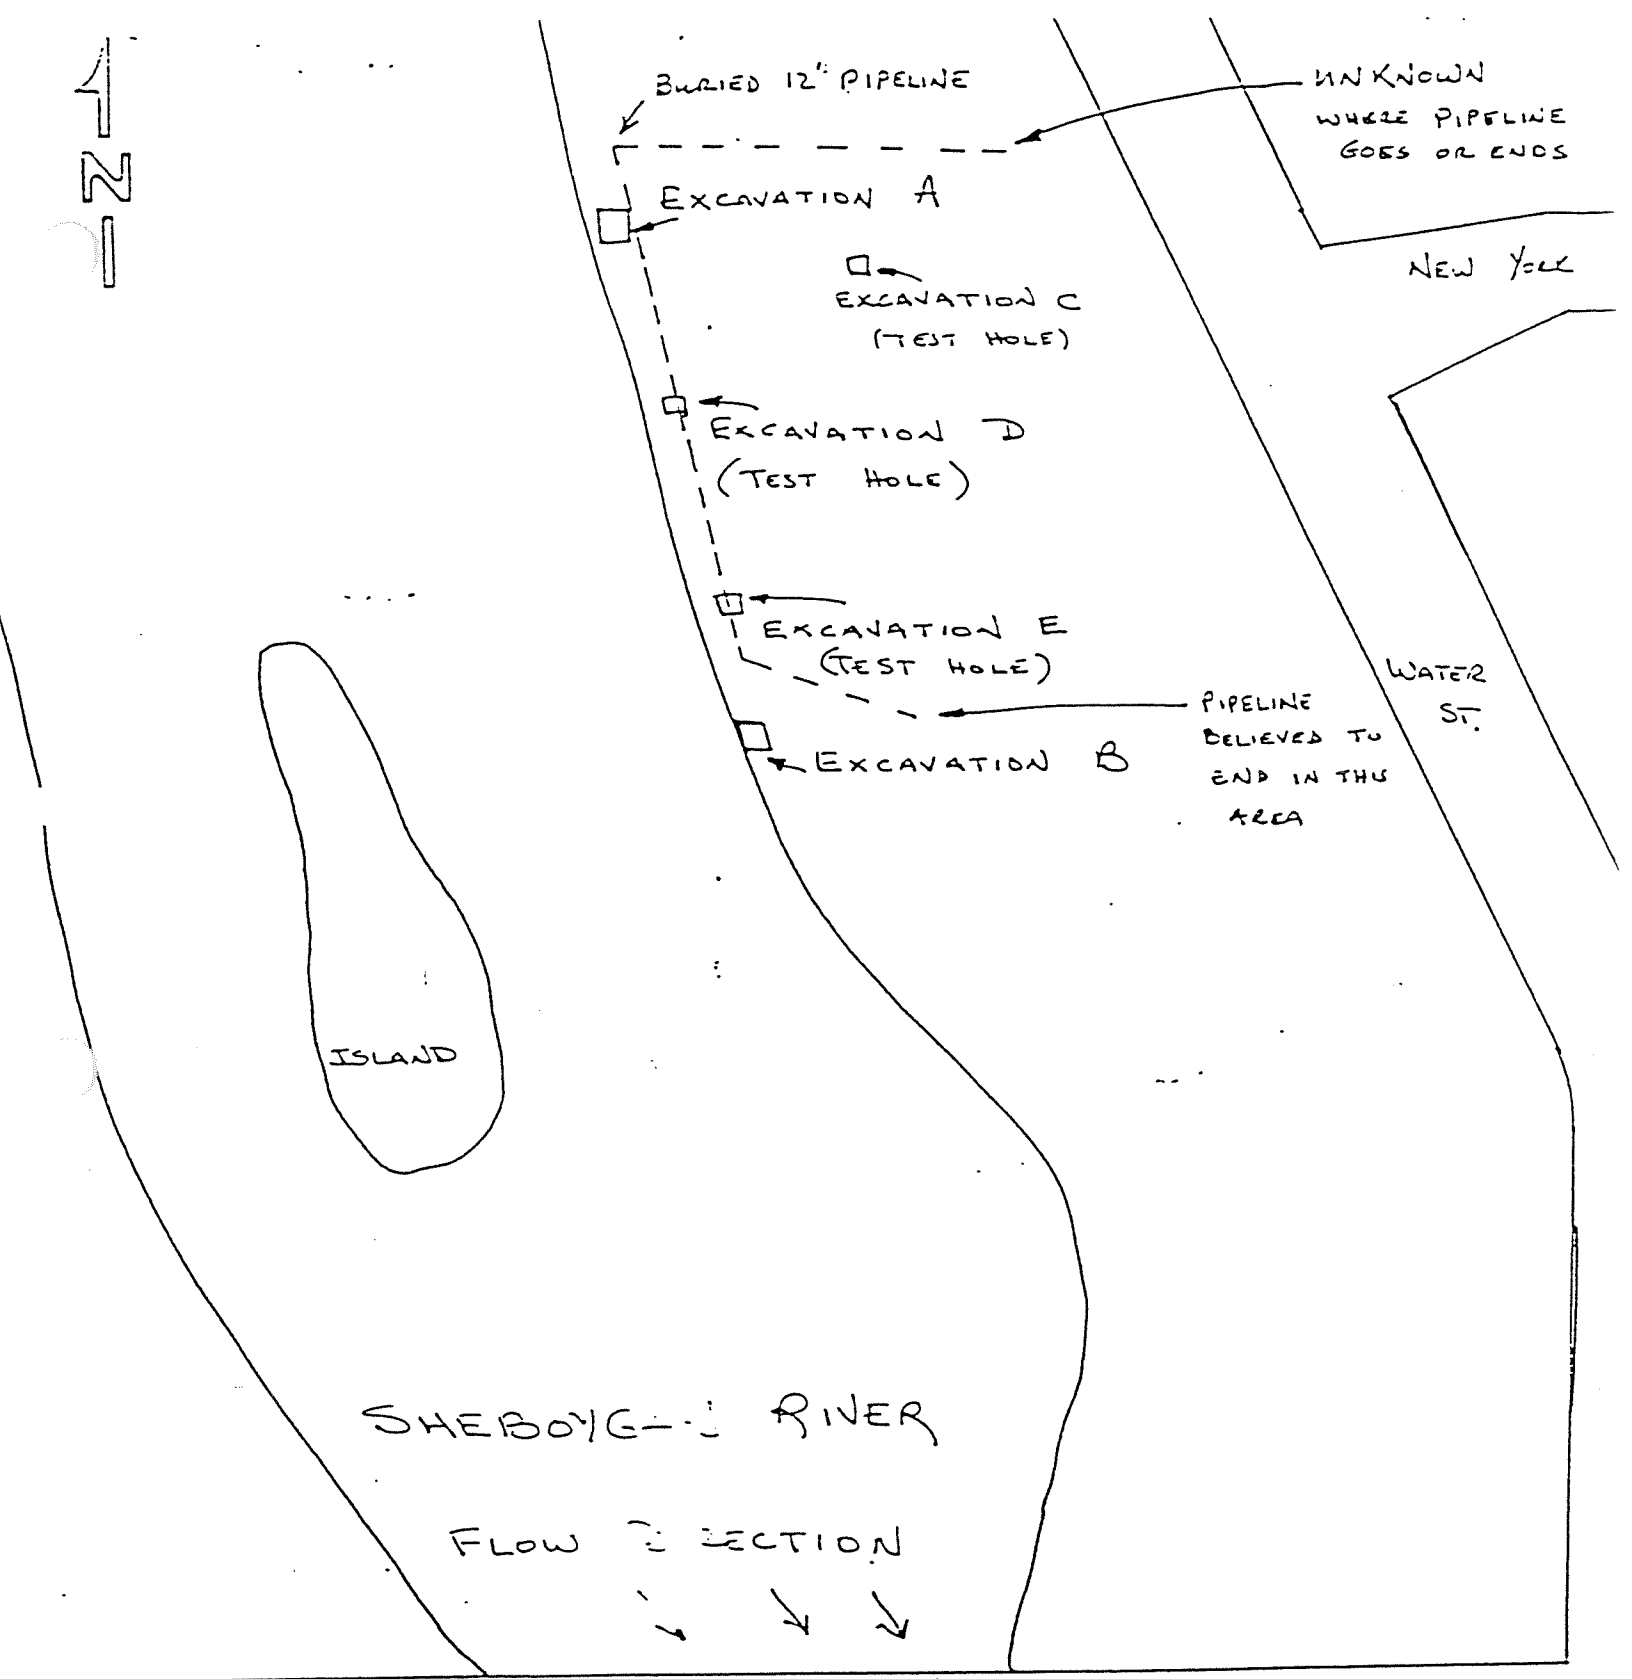 N
BURIED 12" PIPELINE
UNKNOWN
WHERE PIPELINE
GOES OR ENDS
EXCAVATION A
NEW YORK
EXCAVATION C
(TEST HOLE)
EXCAVATION D
(TEST HOLE)
EXCAVATION E
(TEST HOLE)
WATER
ST.
PIPELINE
BELIEVED TO
END IN THIS
AREA
EXCAVATION B
ISLAND
RIVER
FLOW